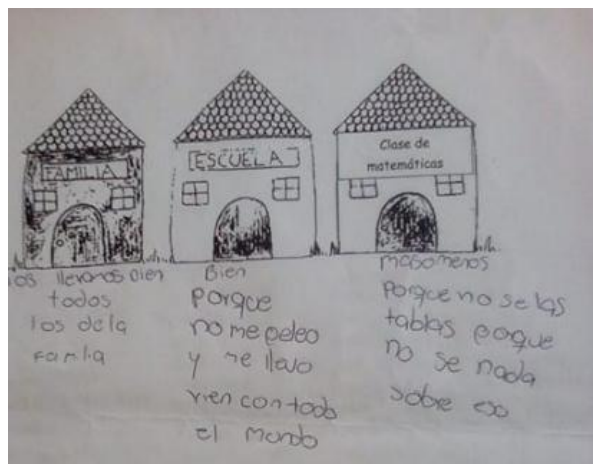 FAMILIA
os llevamos bien
todos
los de la
Familia
ESCUELA
Bien
porque
no me peleo
y me llevo
vien con todo
el mundo
Clase de
matemáticas
masomenos
porque no se las
tablas porque
no se nada
sobre eso